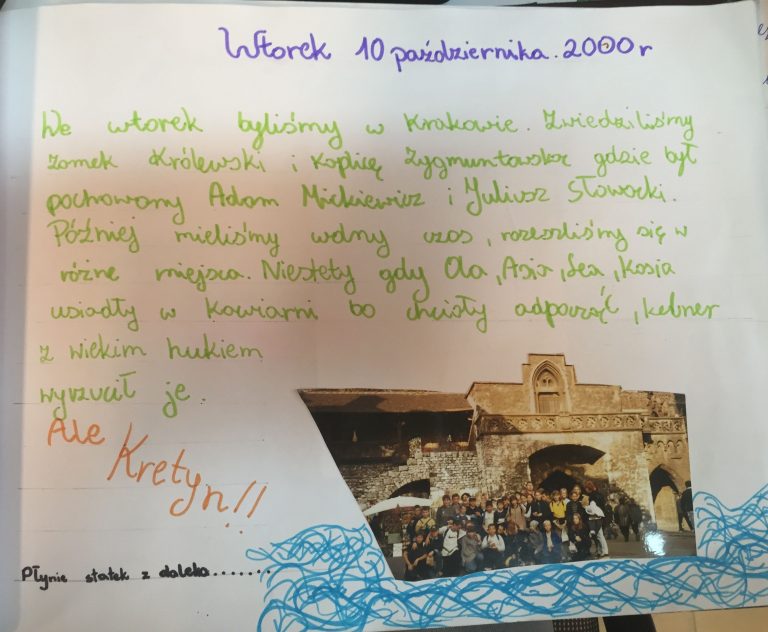 Wtorek 10 października. 2000 r
We wtorek byliśmy w Krakowie. Zwiedziliśmy
zamek Królewski i kaplicę Zygmuntowską gdzie był
pochowany Adam Mickiewicz i Juliusz Słowacki.
Później mieliśmy wolny czas, rozeszliśmy się w
różne miejsca. Niestety gdy Ola, Asia, , Kasia
usiadły w kawiarni bo chciały odpocząć, kelner
z wiekim hukiem
wyrzucił je.
Ale
Kretyn!!
Płynie statek z daleka.......